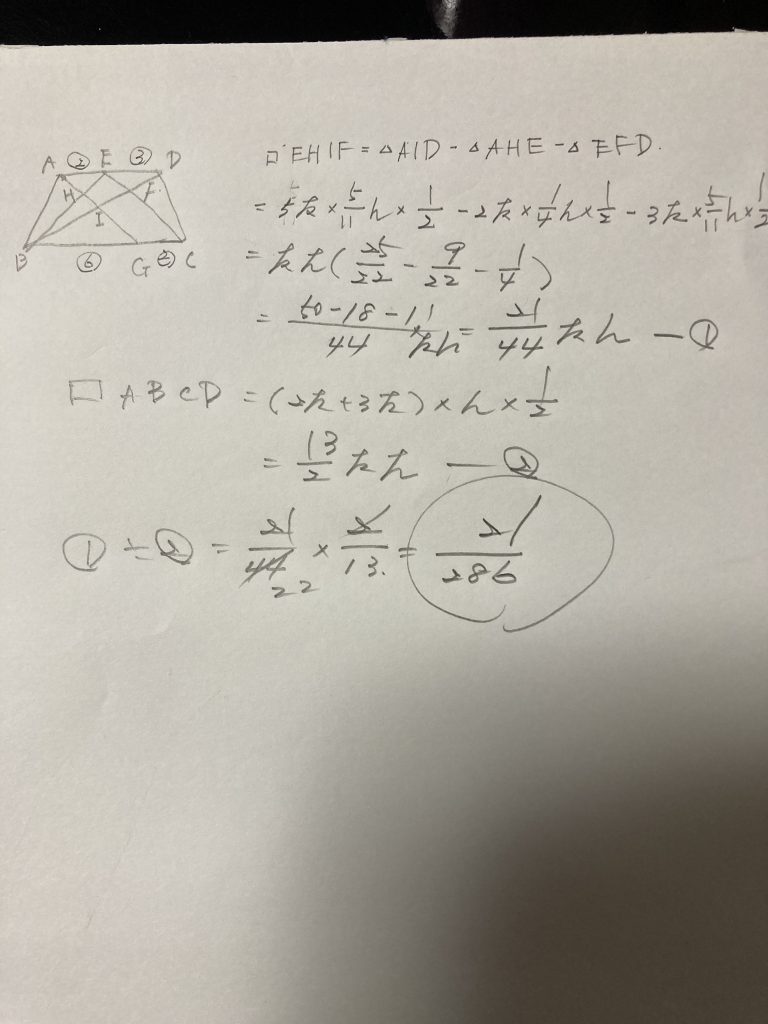 A ② E ③ D
H F
I
B ⑥ G ② C
□EHIF = △AID - △AHE - △EFD.
= 5k × 5/11 h × 1/2 - 2k × 1/4 h × 1/2 - 3k × 5/11 h × 1/2
= kh ( 25/22 - 9/22 - 1/4 )
= 50-18-11/44 × kh = 21/44 kh — ①
□ ABCD = (2k+3k) × h × 1/2
= 13/2 kh — ②
① ÷ ② = 21/44 22 × 2/13. = 21/286